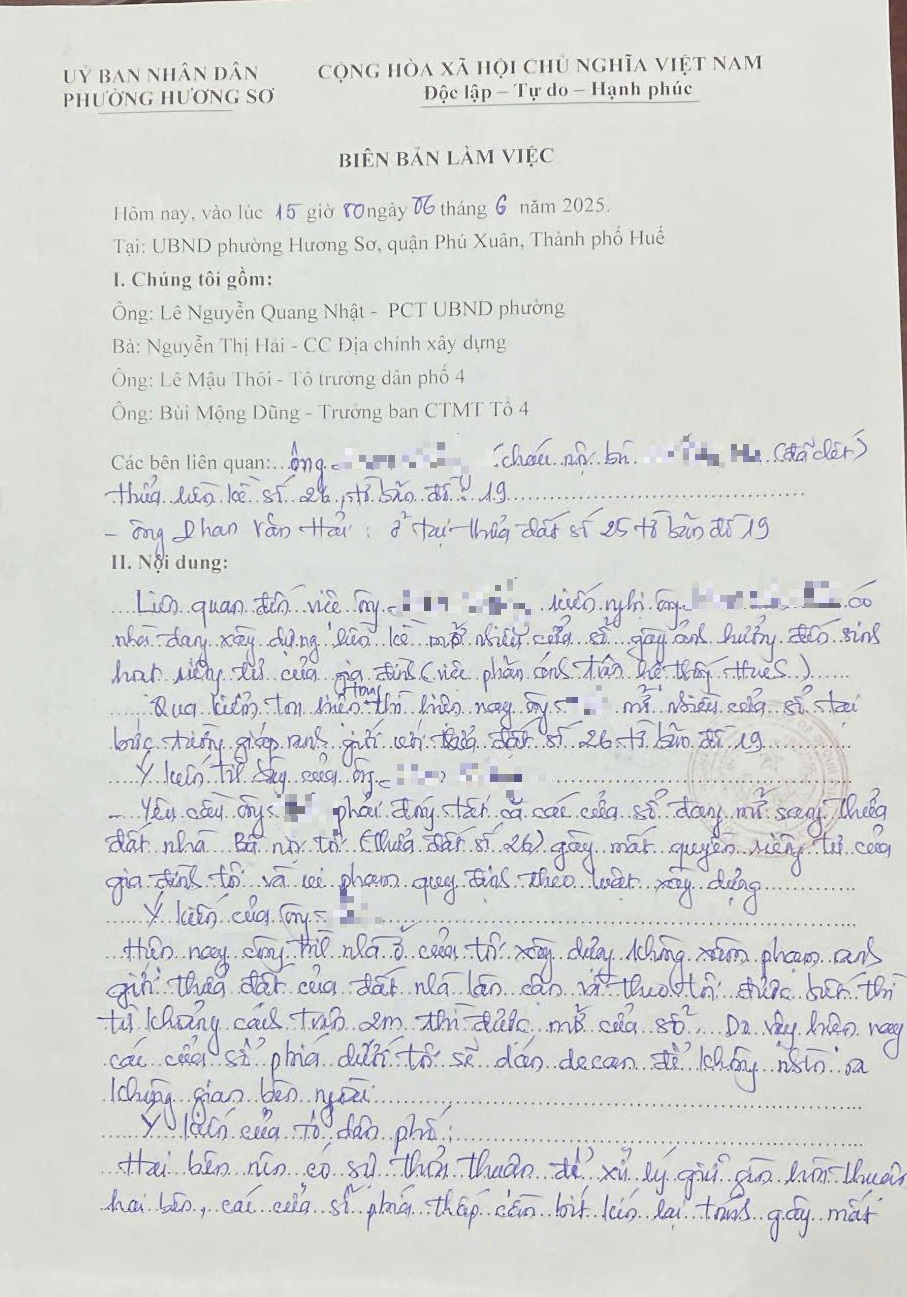 UỶ BAN NHÂN DÂN
PHƯỜNG HƯƠNG SƠ
CỘNG HÒA XÃ HỘI CHỦ NGHĨA VIỆT NAM
Độc lập – Tự do – Hạnh phúc
BIÊN BẢN LÀM VIỆC
Hôm nay, vào lúc 15 giờ 00 ngày 06 tháng 6 năm 2025.
Tại: UBND phường Hương Sơ, quận Phú Xuân, Thành phố Huế
I. Chúng tôi gồm:
Ông: Lê Nguyễn Quang Nhật - PCT UBND phường
Bà: Nguyễn Thị Hải - CC Địa chính xây dựng
Ông: Lê Mậu Thôi - Tổ trưởng dân phố 4
Ông: Bùi Mộng Dũng - Trưởng ban CTMT Tổ 4
Các bên liên quan: Ông (cháu nội bà
thửa liền kề số 26, tờ bản đồ 19
- Ông Phan Văn Hải : ở tại thửa đất số 25 tờ bản đồ 19
II. Nội dung:
Liên quan đến việc ông kiến nghị ông có
nhà đang xây dựng liền kề mở nhiều cửa sổ gây ảnh hưởng đến sinh
hoạt riêng tư của gia đình (việc phản ánh trên hệ thống HueS)
Qua kiểm tra hiện trạng thì hiện nay ông mở nhiều cửa sổ tại
bức tường giáp ranh giới với thửa đất số 26 tờ bản đồ 19
Ý kiến của ông
- Yêu cầu ông phải đóng tất cả các cửa sổ đang mở sang thửa
đất nhà Bà nội tôi (thửa đất số 26) gây mất quyền riêng tư của
gia đình tôi và vi phạm quy định theo luật xây dựng
Ý kiến của ông
Hiện nay công trình nhà ở của tôi xây dựng không xâm phạm ranh
giới thửa đất của đất nhà lân cận và theo tôi được biết thì
từ khoảng cách trên 2m thì được mở cửa sổ. Do vậy hiện nay
các cửa sổ phía dưới tôi sẽ dán decan để không nhìn ra
không gian bên ngoài
Ý kiến của tổ dân phố:
Hai bên nên có sự thỏa thuận để xử lý giữ gìn hòa thuận
hai bên, các cửa sổ phía thấp cần bít kín lại tránh gây mất